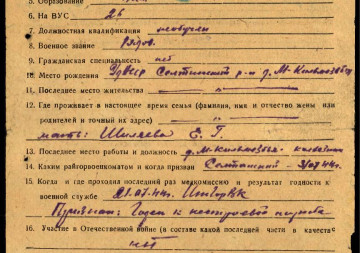 5. Образование
6. На ВУС 26
7. Должностная квалификация необучен
8. Военное звание Рядов.
9. Гражданская специальность нет
10. Место рождения Удмур. Селтинский р-н д. М-
11. Последнее место жительства — „ — „ —
12. Где проживает в настоящее время семья (фамилия, имя и отчество жены или
родителей и точный их адрес)
мать: Шиляева Е. Г.
13. Последнее место работы и должность д. М.
14. Каким райгорвоенкоматом и когда призван Селтинский
15. Когда и где проходил последний раз медкомиссию и результат годности к
военной службе 21.07.44г.
Признан: Годен к нестроевой службе
16. Участие в Отечественной войне (в составе какой последней части в качестве
нет